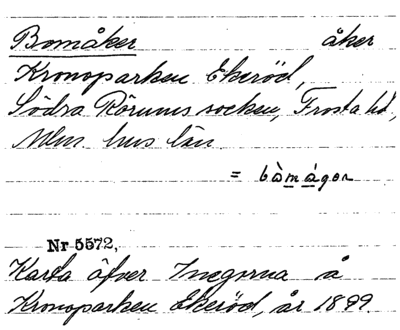 Bomåker åker
Kronoparken Ekeröd,
Södra Rörums socken, Frosta hd,
Mlms hus län.
= bòmágor
Nr 5572,
Karta öfver Inegorna å
Kronoparken Ekeröd, år 1899.